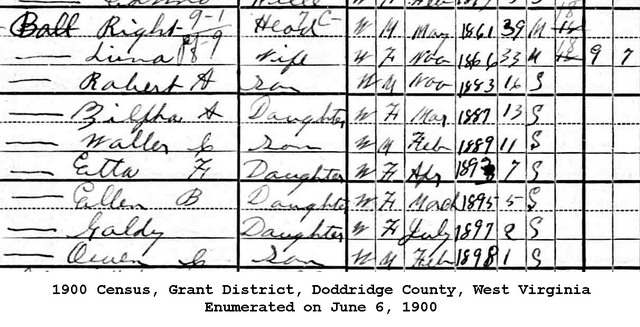 Ball Right Head W M May 1861 39 M 18
— Luna Wife W F Nov 1866 33 M 18 9 7
— Robert A Son W M Nov 1883 16 S
— Zilpha A Daughter W F Mar 1887 13 S
— Walter C Son W M Feb 1889 11 S
— Etta F Daughter W F Apr 1893 7 S
— Ellen B Daughter W F March 1895 5 S
— Goldy Daughter W F July 1897 2 S
— Owen C Son W M Feb 1898 1 S
1900 Census, Grant District, Doddridge County, West Virginia
Enumerated on June 6, 1900